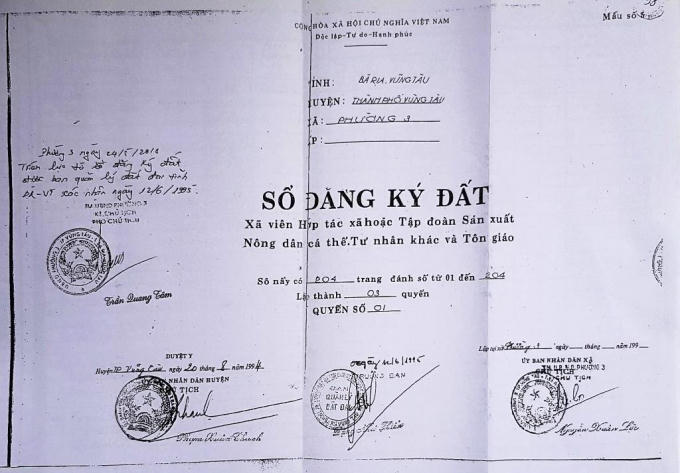 CỘNG HÒA XÃ HỘI CHỦ NGHĨA VIỆT NAM
Độc lập-Tự do-Hạnh phúc
Mẫu số 5
TỈNH: BÀ RỊA. VŨNG TÀU
HUYỆN: THÀNH PHỐ VŨNG TÀU
XÃ: PHƯỜNG 3
ẤP:
Phường 3 ngày 24/5/2010
Trích lục từ sổ đăng ký đất
được ban quản lý đất đai tỉnh
BR-VT xác nhận ngày 12/6/1995.
TM.UBND PHƯỜNG 3
KT.CHỦ TỊCH
PHÓ CHỦ TỊCH
Trần Quang Tâm
SỔ ĐĂNG KÝ ĐẤT
Xã viên Hợp tác xã hoặc Tập đoàn Sản xuất
Nông dân cá thể. Tư nhân khác và Tôn giáo
Sổ nầy có 204 trang đánh số từ 01 đến 204
Lập thành 03 quyển
QUYỂN SỐ 01
DUYỆT Y
Huyện TP Vũng Tàu ngày 20 tháng 8 1994
NHÂN DÂN HUYỆN
CHỦ TỊCH
ngày 12/6/1995
TRƯỞNG BAN
BAN QUẢN LÝ ĐẤT ĐAI
Lập tại xã Phường 3 ngày tháng 199
ỦY BAN NHÂN DÂN XÃ
TM UBND PHƯỜNG 3
CHỦ TỊCH
Nguyễn Xuân